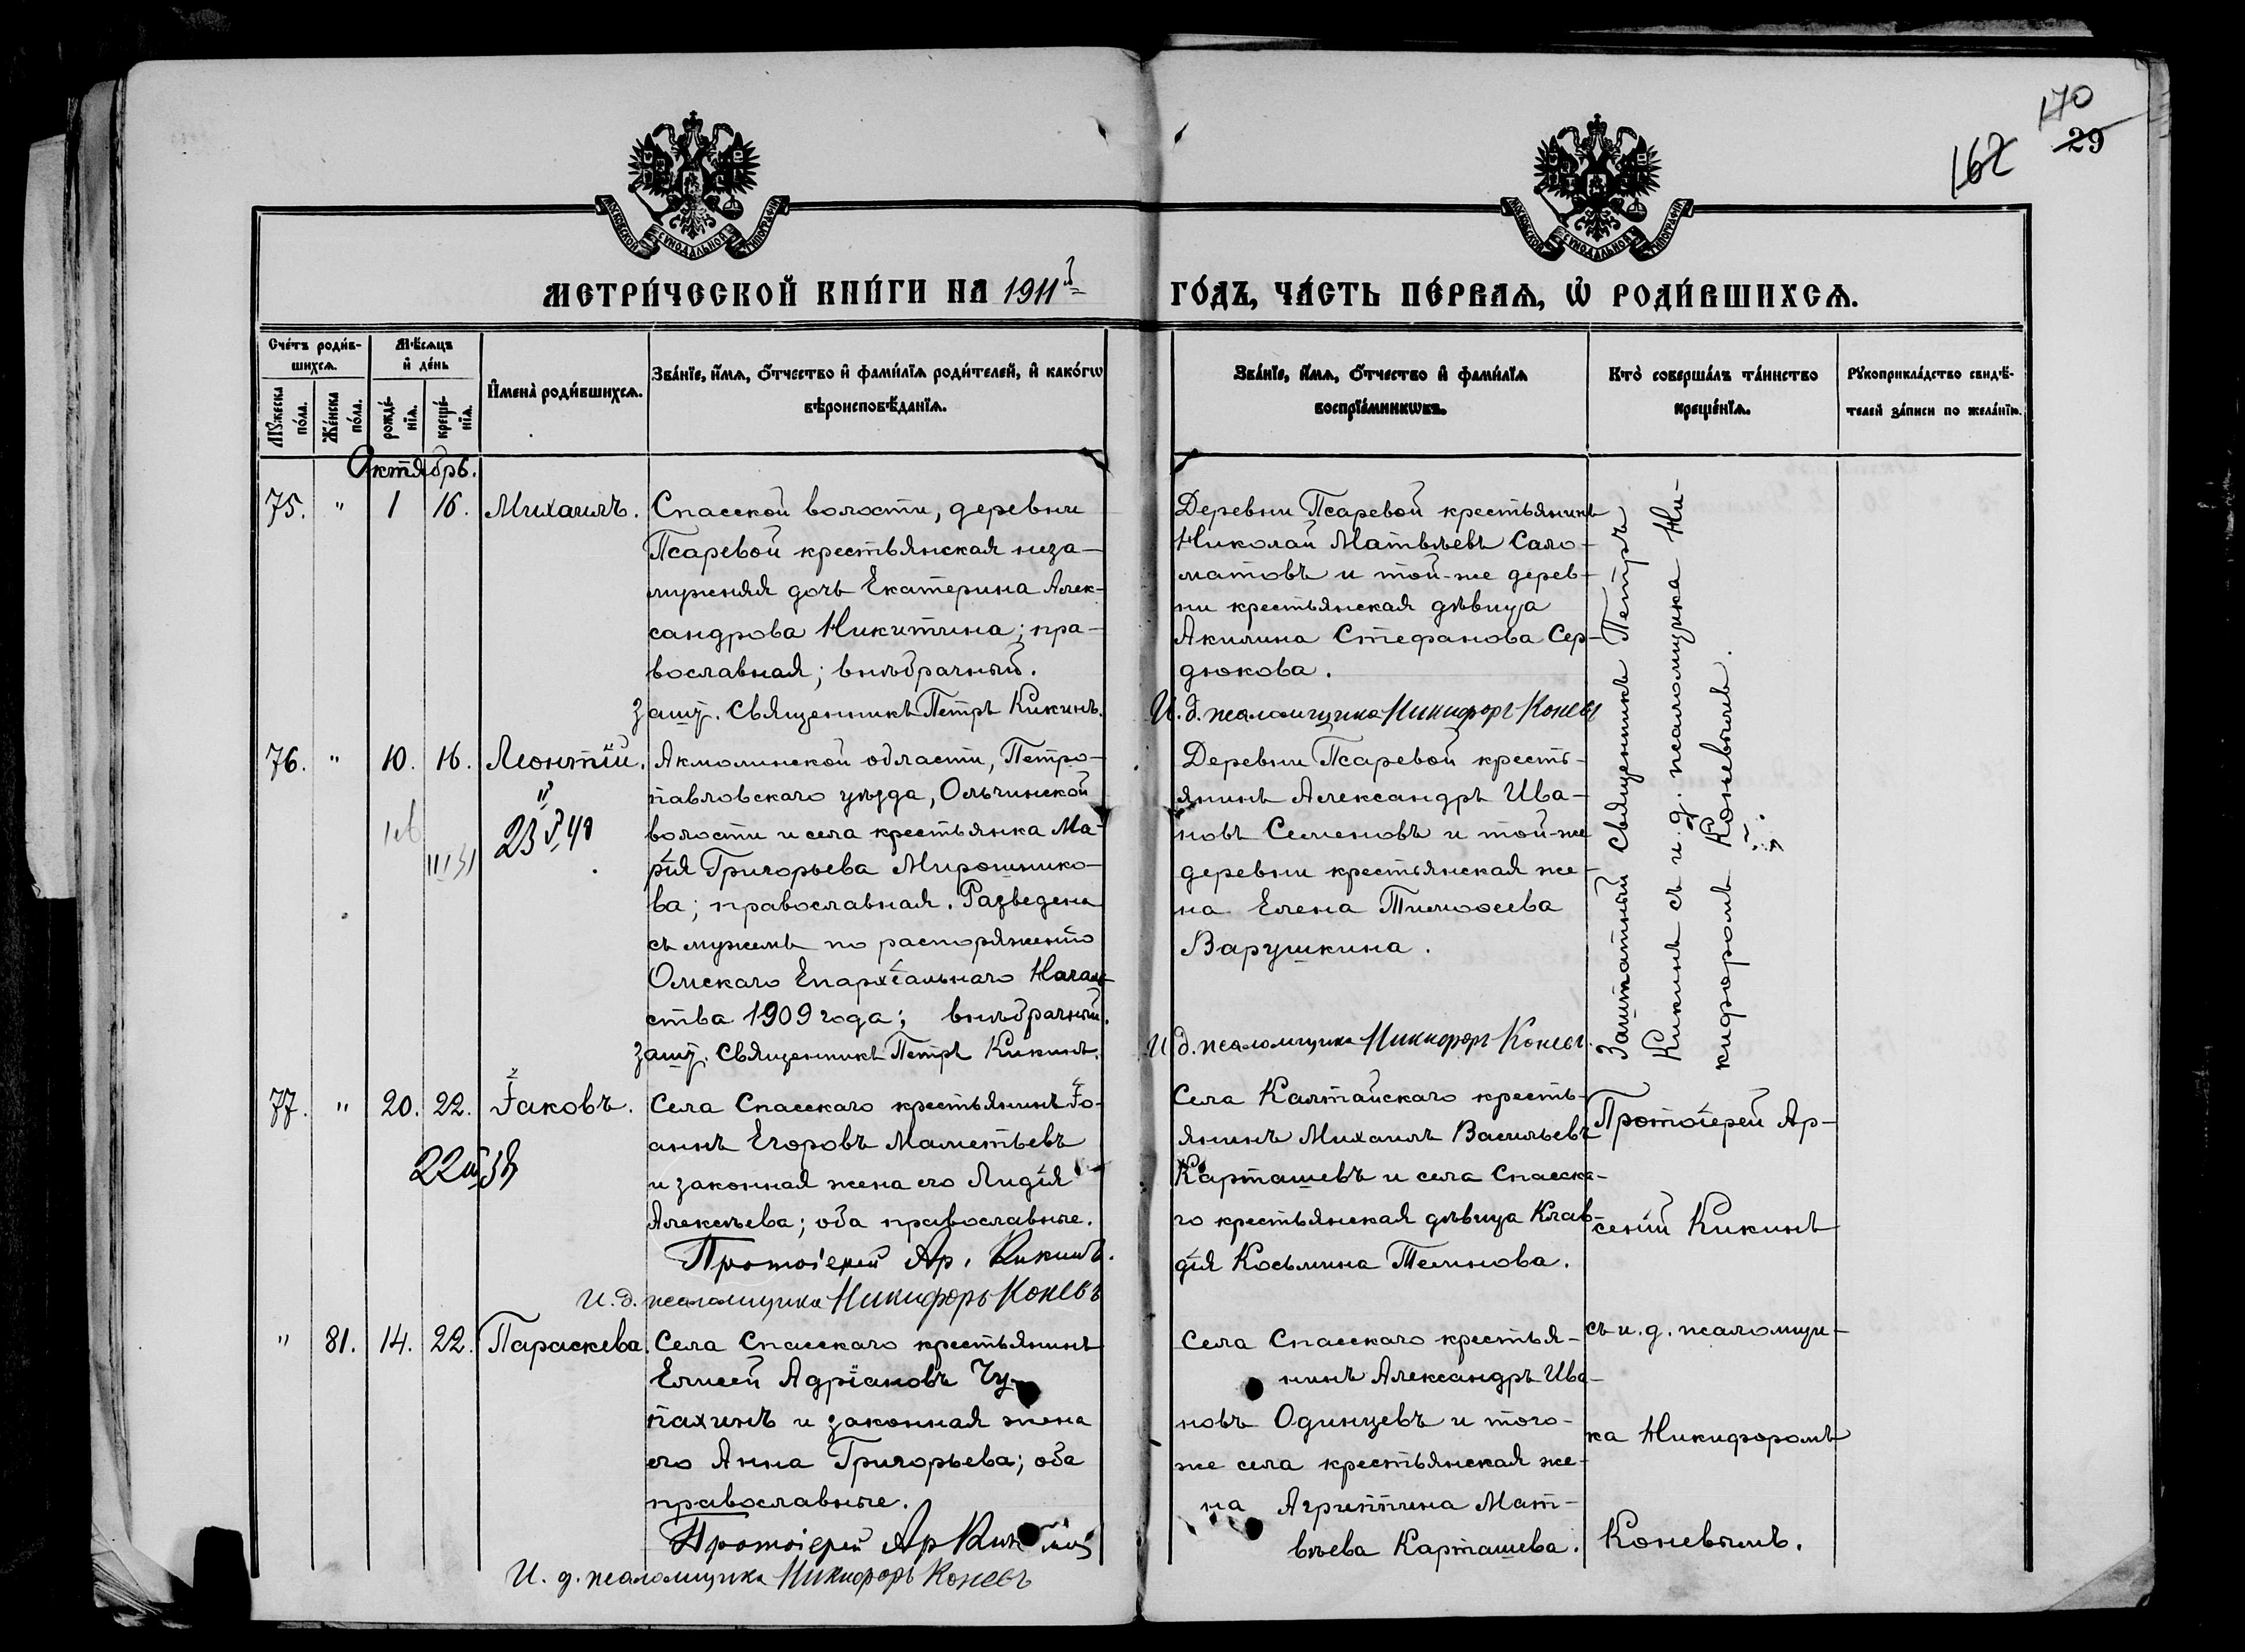 170
29
162
МОСКОВСКОЙ СѴНОДАЛЬНОЙ ТИПОГРАФІИ
МОСКОВСКОЙ СѴНОДАЛЬНОЙ ТИПОГРАФІИ
МЕТРИ́ЧЕСКОЙ КНИ́ГИ НА 1911й
ГО́ДЪ, ЧА́СТЬ ПЕ́РВАѦ, Ѽ РОДИ́ВШИХСѦ.
Сче́тъ роди́в-
шихсѧ.
Мꙋжеска по́ла.
Же́нска по́ла.
Мѣ́сѧцъ
и҆ де́нь
рожде́-
нїѧ.
креще́-
нїѧ.
И҆мена̀ роди́вшихсѧ.
Зва́нїе, и҆́мѧ, ѻ҆́тчество и҆ фами́лїѧ роди́телей, и҆ како́гѡ
вѣроисповѣ́данїѧ.
Зва́нїе, и҆́мѧ, ѻ҆́тчество и҆ фами́лїѧ
воспрїе́мникѡвъ.
Кто̀ соверша́лъ та́инство
креще́нїѧ.
Рꙋкоприкла́дство свидѣ́-
телей за́писи по жела́нїю.
Октябрь.
75. " 1 16. Михаилъ.
Спасской волости, деревни
Псаревой крестьянская неза-
мужняя дочь Екатерина Алек-
сандрова Никитина; пра-
вославная; внѣбрачный.
зашт. Священникъ Петръ Кикинъ.
Деревни Псаревой крестьянинъ
Николай Матвѣевъ Сало-
матовъ и той-же дерев-
ни крестьянская дѣвица
Акилина Стефанова Сер-
дюкова.
И. д. псаломщика Никифоръ Коневъ
Заштатный Священникъ Петръ
Кикинъ съ и. д. псаломщика Ни-
кифоромъ Коневымъ.
76. " 10. 16. Леонтій.
23 V 49
Акмолинской области, Петро-
павловскаго уѣзда, Ольгинской
волости и села крестьянка Ма-
рія Григорьева Мирошнико-
ва; православная. Разведена
съ мужемъ по распоряженію
Омскаго Епархіальнаго Началь-
ства 1909 года; внѣбрачный.
зашт. Священникъ Петръ Кикинъ.
Деревни Псаревой кресть-
янинъ Александръ Ива-
новъ Семеновъ и той-же
деревни крестьянская же-
на Елена Тимоѳеева
Варушкина.
И. д. псаломщика Никифоръ Коневъ.
77. " 20. 22. Іаковъ.
Села Спасскаго крестьянинъ Іо-
аннъ Егоровъ Маметьевъ
и законная жена его Лидія
Алексѣева; оба православные.
Протоіерей Ар. Кикинъ.
И. д. псаломщика Никифоръ Коневъ
Села Калтайскаго кресть-
янинъ Михаилъ Васильевъ
Карташевъ и села Спасска-
го крестьянская дѣвица Клав-
дія Косьмина Теминова.
Протоіерей Ар-
сеній Кикинъ
съ и. д. псаломщи-
ка Никифоромъ
Коневымъ.
" 81. 14. 22. Параскева.
Села Спасскаго крестьянинъ
Елисей Адріановъ Чу-
пахинъ и законная жена
его Анна Григорьева; оба
православные.
Протоіерей Ар Кикинъ
И. д. псаломщика Никифоръ Коневъ
Села Спасскаго крестья-
нинъ Александръ Ива-
новъ Одинцевъ и того-
же села крестьянская же-
на Агриппина Мат-
вѣева Карташева.